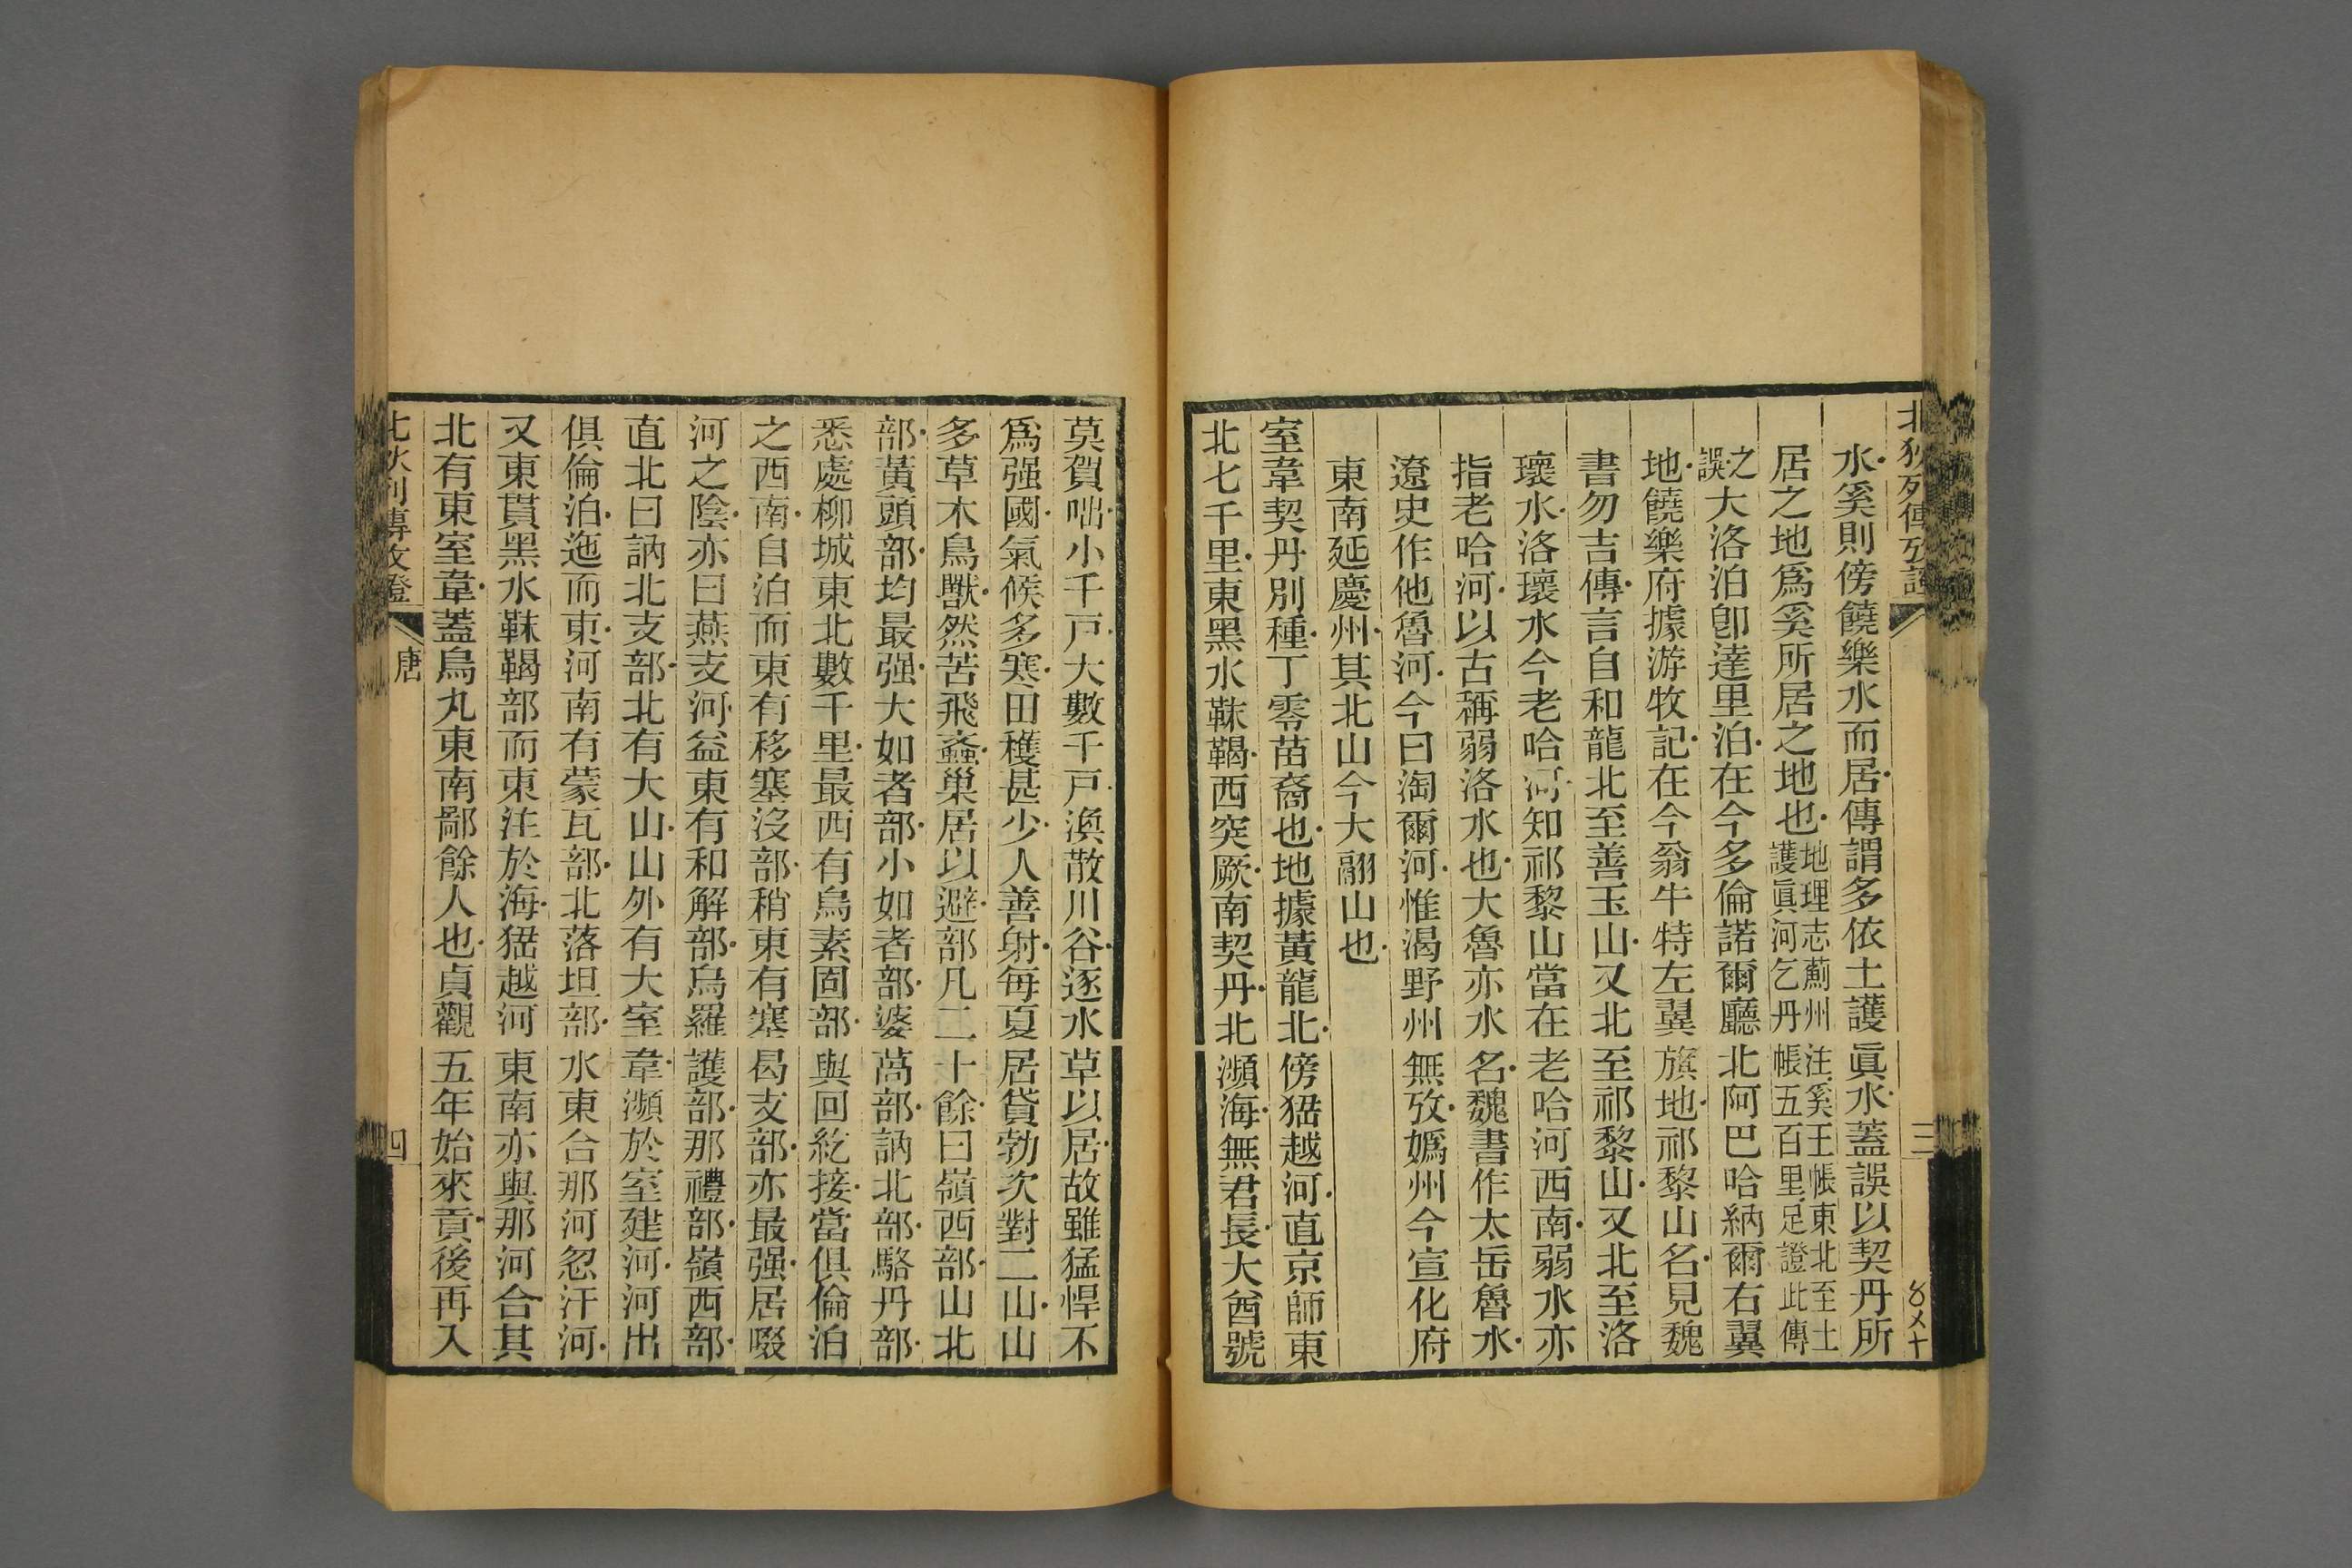 北狄列傳攷證
三
水奚則傍饒樂水而居傳謂多依土護眞水蓋誤以契丹所
居之地爲奚所居之地也地理志薊州注奚王帳東北至土
護眞河乞丹帳五百里足證此傳
之誤大洛泊卽達里泊在今多倫諾爾廳北阿巴哈納爾右翼
地饒樂府據游牧記在今翁牛特左翼旗地祁黎山名見魏
書勿吉傳言自和龍北至善玉山又北至祁黎山又北至洛
瓌水洛瓌水今老哈河知祁黎山當在老哈河西南弱水亦
指老哈河以古稱弱洛水也大魯亦水名魏書作太岳魯水
遼史作他魯河今曰淘爾河惟渴野州無攷嬀州今宣化府
東南延慶州其北山今大翮山也
室韋契丹別種丁零苗裔也地據黃龍北傍峱越河直京師東
北七千里東黑水靺鞨西突厥南契丹北瀕海無君長大酋號
莫賀咄小千戶大數千戶渙散川谷逐水草以居故雖猛悍不
爲强國氣候多寒田穫甚少人善射每夏居貸勃次對二山山
多草木鳥獸然苦飛蟁巢居以避部凡二十餘曰嶺西部山北
部黃頭部均最强大如者部小如者部婆萵部訥北部駱丹部
悉處柳城東北數千里最西有烏素固部與回紇接當俱倫泊
之西南自泊而東有移塞沒部稍東有塞曷支部亦最强居啜
河之陰亦曰燕支河益東有和解部烏羅護部那禮部嶺西部
直北曰訥北支部北有大山山外有大室韋瀕於室建河河出
俱倫泊迤而東河南有蒙瓦部北落坦部水東合那河忽汗河
又東貫黑水靺鞨部而東注於海峱越河東南亦與那河合其
北有東室韋蓋烏丸東南鄙餘人也貞觀五年始來貢後再入
北狄列傳攷證
唐
四